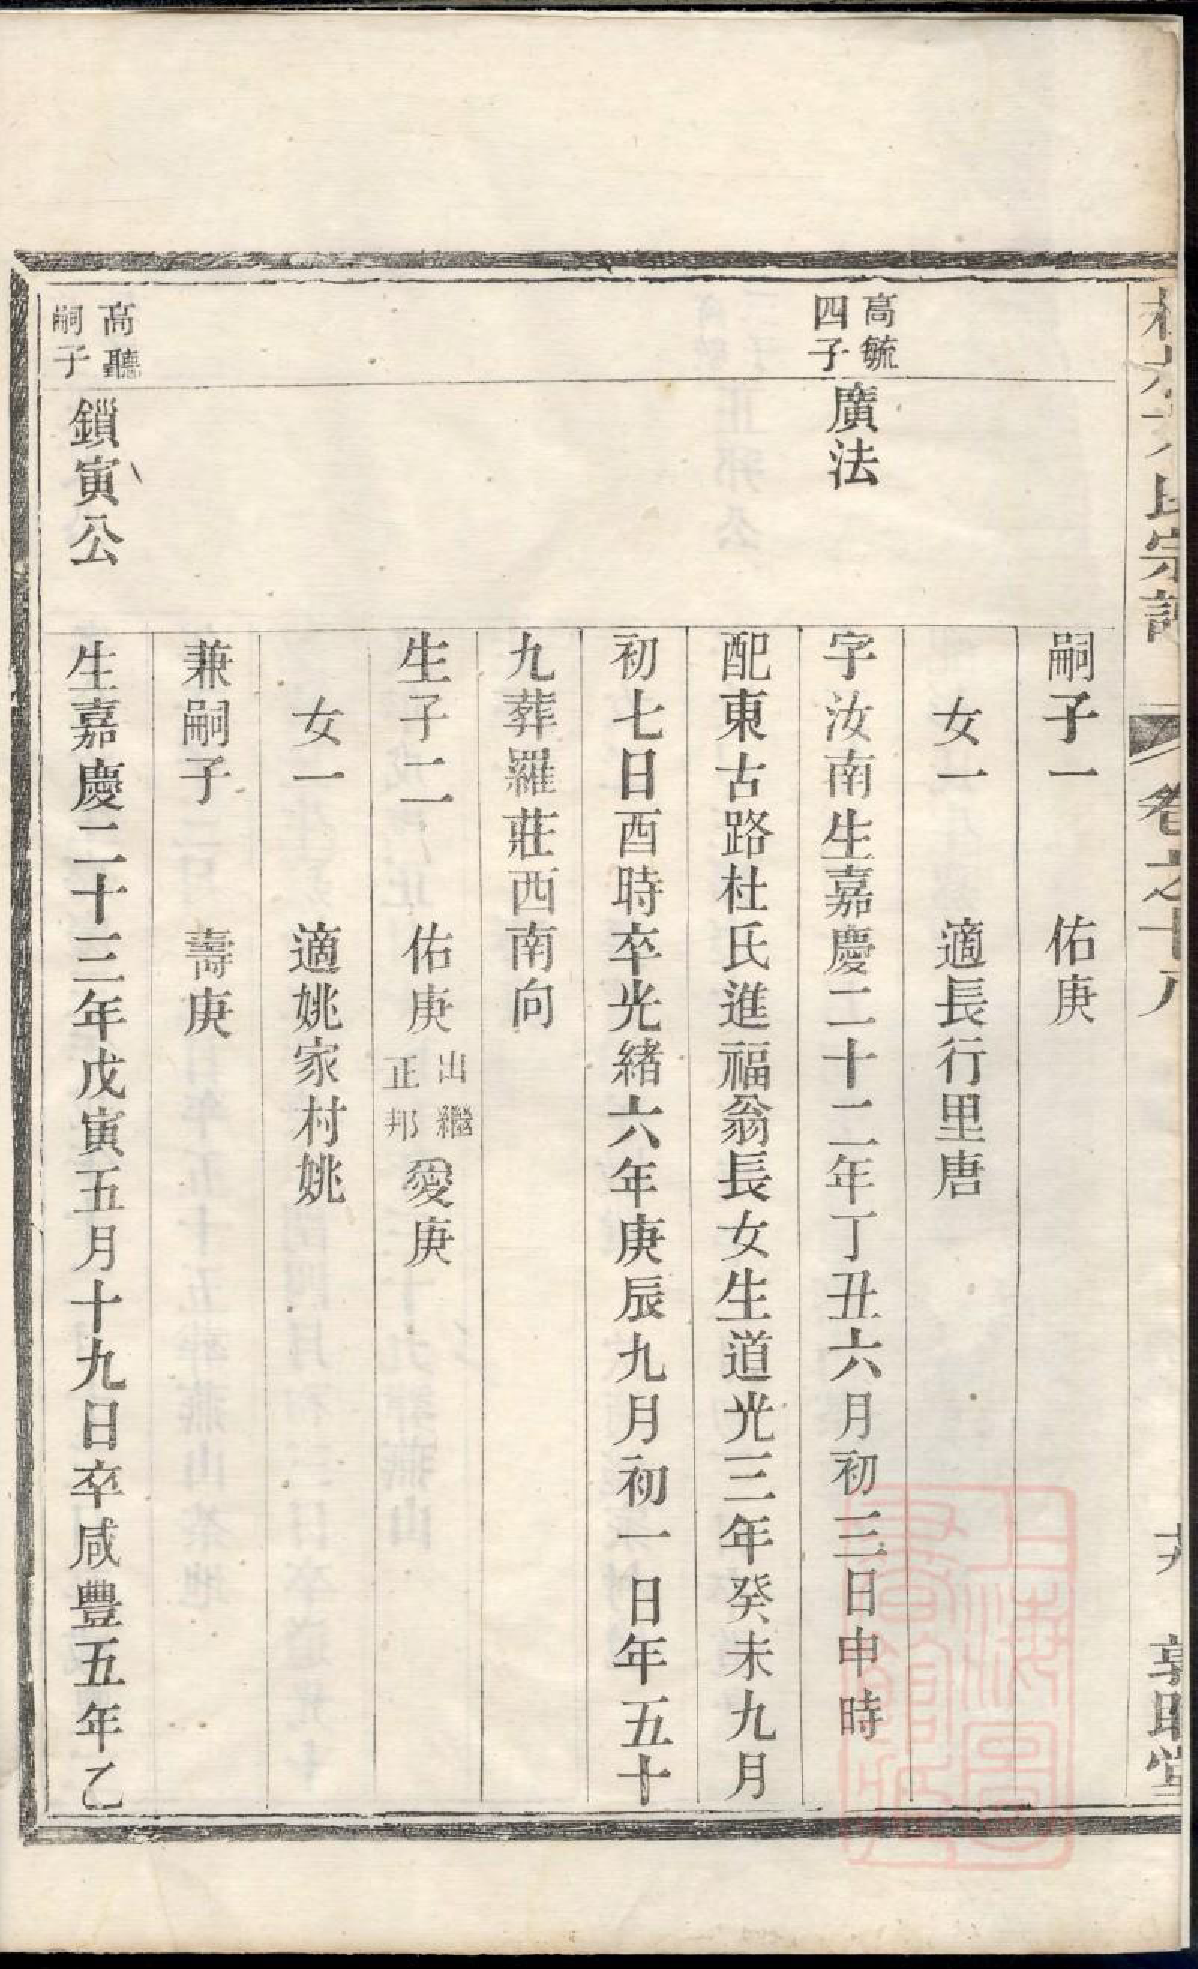 氏宗譜 卷之十八 敦睦堂
嗣子一 佑庚
女一 適長行里唐
高毓
四子
廣法
字汝南生嘉慶二十二年丁丑六月初三日申時
配東古路杜氏進福翁長女生道光三年癸未九月
初七日酉時卒光緒六年庚辰九月初一日年五十
九葬羅莊西南向
生子二 佑庚 出繼正邦 愛庚
女一 適姚家村姚
兼嗣子 壽庚
高聽
嗣子
鎖寅公
生嘉慶二十三年戊寅五月十九日卒咸豐五年乙
上海圖書館藏